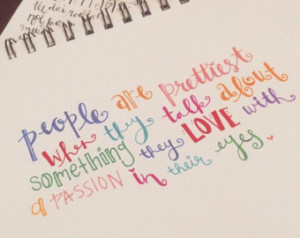 people are prettiest
when they talk about
something they LOVE with
a PASSION in their eyes.